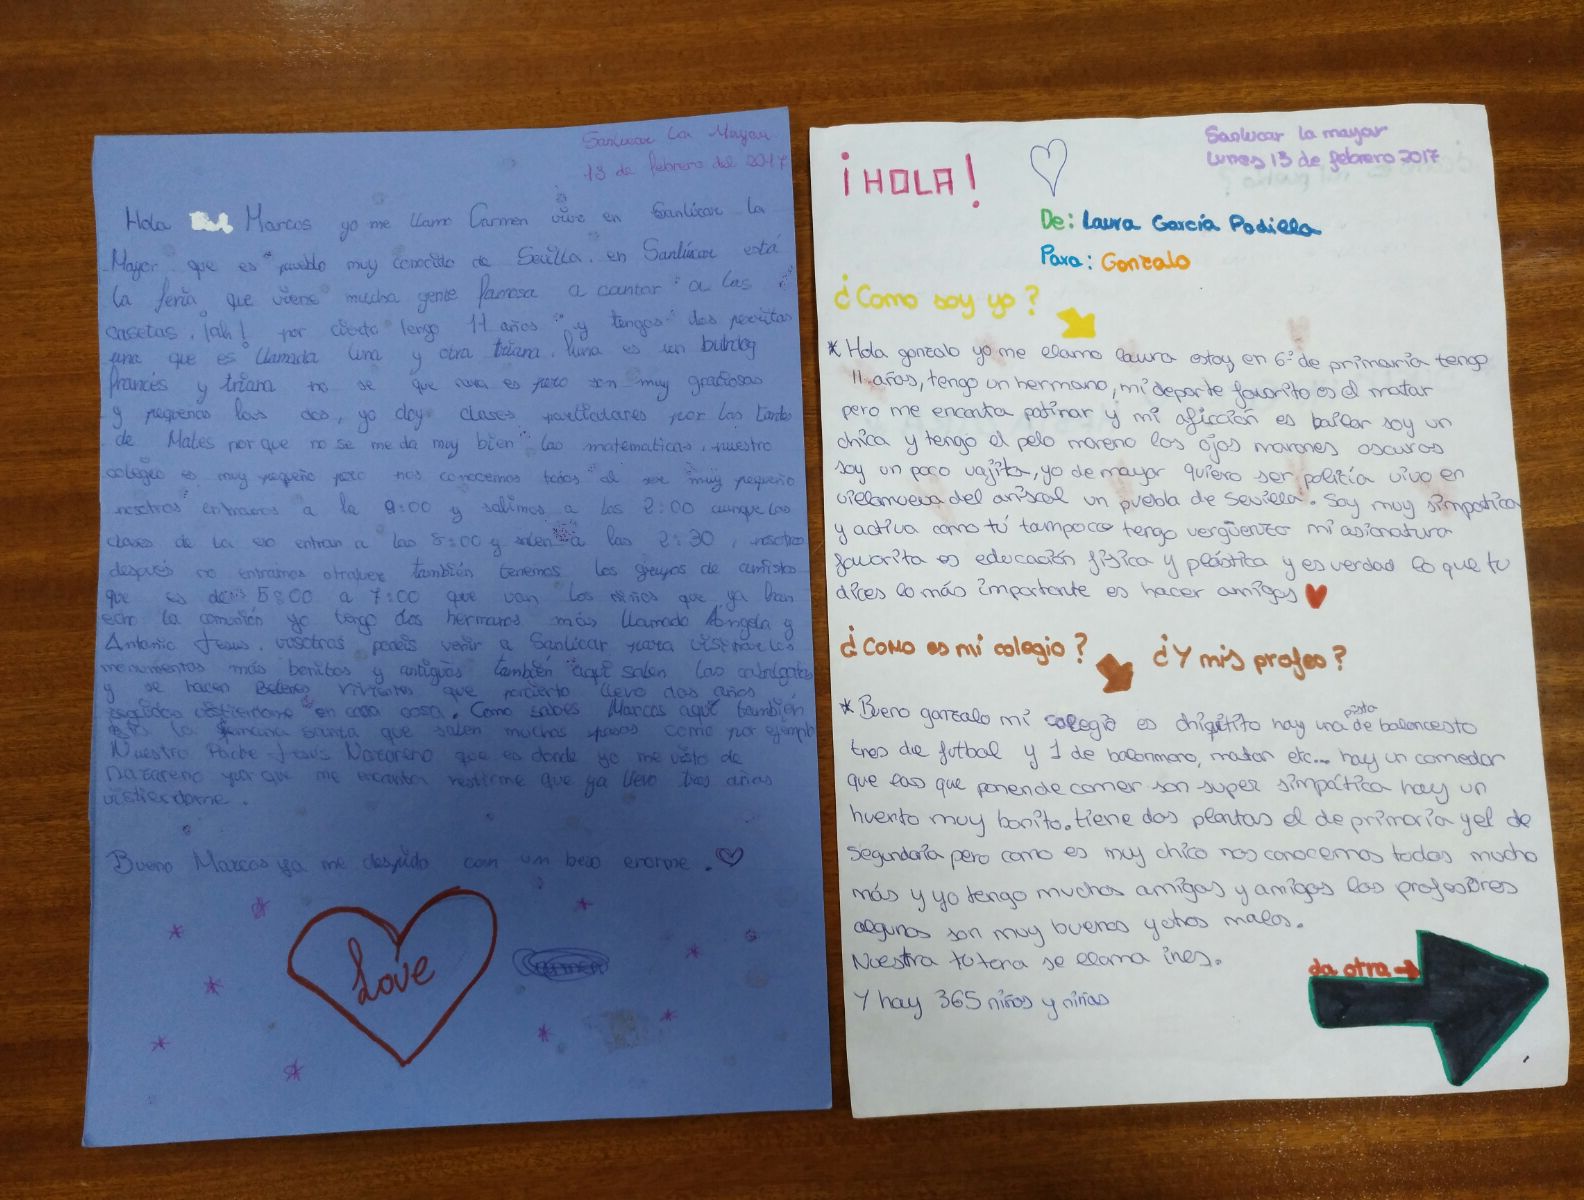 Sanlucar La Mayor
13 de febrero del 2017
Hola Marcos yo me llamo Carmen vivo en Sanlúcar la
Mayor que es pueblo muy conocido de Sevilla. en Sanlúcar está
la feria que viene mucha gente famosa a cantar a las
casetas. ¡ah! por cierto tengo 11 años y tengos dos perritas
una que es llamada luna y otra triana. luna es un buldog
francés y triana no se que raza es pero son muy graciosas
y pequeñas las dos, yo doy clases particulares por las tardes
de Mates porque no se me da muy bien las matematicas. nuestro
colegio es muy pequeño pero nos conocemos todos al ser muy pequeño
nosotros entramos a la 9:00 y salimos a las 2:00 aunque los
clases de la eso entran a las 8:00 y salen a las 2:30, nosotros
después no entramos otravez también tenemos los grupos de
que es de 5:00 a 7:00 que van los niños que ya han
echo la comunión yo tengo dos hermanos más llamado Ángela y
Antonio Jesus. vosotros podéis venir a Sanlúcar para visitar los
monumentos más bonitos y antiguos también aquí salen las cabalgatas
y se hacen Belenes vivientes que porcierto llevo dos años
seguidos vistiendome en esa cosa. Como sabes Marcos aquí también
está la semana santa que salen muchos pasos como por ejemplo
Nuestro Padre Jesús Nazareno que es donde yo me visto de
nazareno por que me encanta vestirme que ya llevo tres años
vistiendome.
Bueno Marcos ya me despido con un beso enorme.
Love
¡HOLA!
Sanlucar la mayor
Lunes 13 de febrero 2017
De: Laura García Padilla
Para: Gonzalo
¿Como soy yo?
* Hola gonzalo yo me llamo laura estoy en 6º de primaria tengo
11 años, tengo un hermano, mi deporte favorito es el matar
pero me encanta patinar y mi aficción es bailar soy un
chica y tengo el pelo moreno los ojos marones oscuros
soy un poco vajita, yo de mayor quiero ser policía vivo en
villanueva del ariscal un puebla de Sevilla. Soy muy simpatica
y activa como tú tampoco tengo vergüenza mi asionatura
favorita es educación física y plástica y es verdad lo que tu
dices lo más importante es hacer amigos
¿Como es mi colegio? ¿Y mis profes?
* Bueno gonzalo mi colegio es chiquitito hay una pista de baloncesto
tres de futbal y 1 de balonmano, matar etc... hay un comedor
que las que ponen de comer son super simpática hay un
huerto muy bonito. tiene dos plantas el de primaria y el de
segundaria pero como es muy chico nos conocemos todos mucho
más y yo tengo muchos amigas y amigos los profesores
algunos son muy buenos y otros malos.
Nuestra tutora se llama ines.
Y hay 365 niños y niñas
da otra